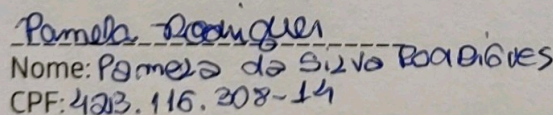 Pamela Rodrigues
Nome: Pamela da Silva Rodrigues
CPF: 423.116.308-14